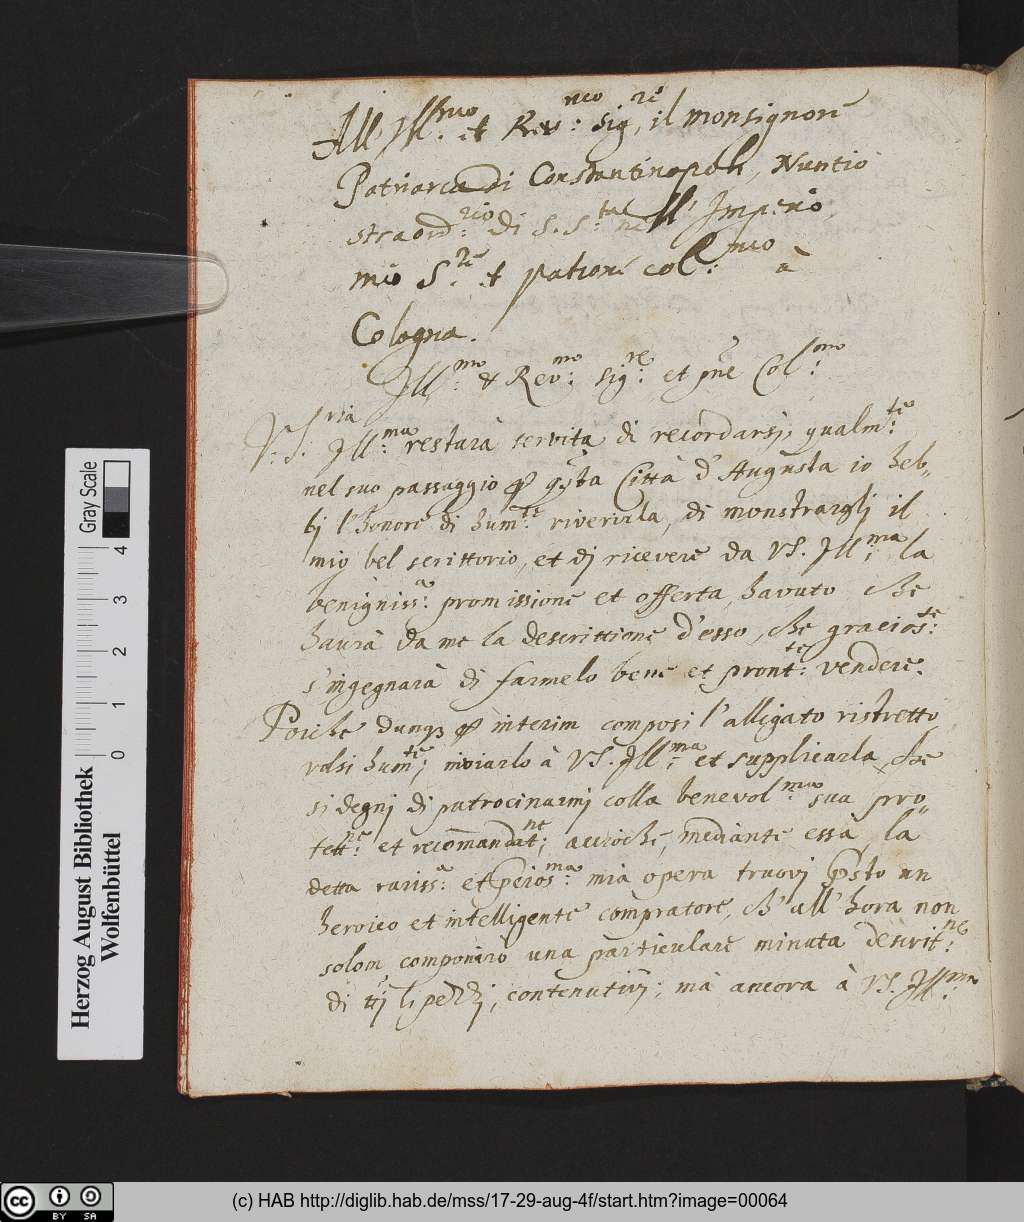 All' Ill.mo et Rev.mo sig.re, il monsignore
Patriarca di Constantinopoli, Nuntio
straord.rio di S. S.ta nell' Imperio,
mio S.re et patrone col.mo à
Cologna.
Ill.mo & Rev.mo sig.re et pñe Col.mo
V.S.ria Ill.ma restarà servita di recordarsi, qualm.te
nel suo passaggio p qsta Città d'Augusta io heb-
bi l'honore di hum.te riverirla, di monstrargli il
mio bel scrittorio, et di ricevere da VS. Ill.ma la
benigniss.a promissione et offerta, havuto che
haurà da me la descrittione d'esso, che gracios.te
s'ingegnarà di farmelo bene et pront.te vendere.
Poiche dunq3 p interim composi l'alligato ristretto
volsi hum.te inviarlo à VS. Ill.ma et supplicarla che
si degni di patrocinarmi colla benevol.ma sua pro-
tett.ne et recomandat.ne, accioche, mediante essa la
detta rariss.a et pcios.ma mia opera truovi psto un
heroico et intelligente compratore, ch' all' hora non
solom componirò una particulare minuta descrit.ne
di tti li pezzi, contenutivi, mà ancora à VS. Ill.ma
Gray Scale
0 1 2 3 4
Herzog August Bibliothek
Wolfenbüttel
cc BY SA
(c) HAB http://diglib.hab.de/mss/17-29-aug-4f/start.htm?image=00064